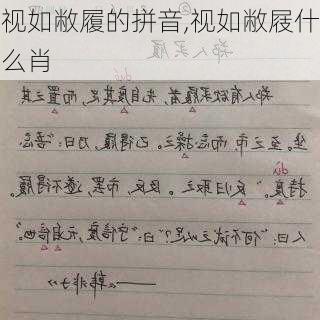 视如敝履的拼音,视如敝屐什
么肖
郑人买履
郑人有欲买履者，先自度其足，而置之其
坐。至之市，而忘操之。已得履，乃曰：“吾忘
持度。”反归取之。及反，市罢，遂不得履。
人曰：“何不试之以足？”曰：“宁信度，无自信也。”
——《韩非子》